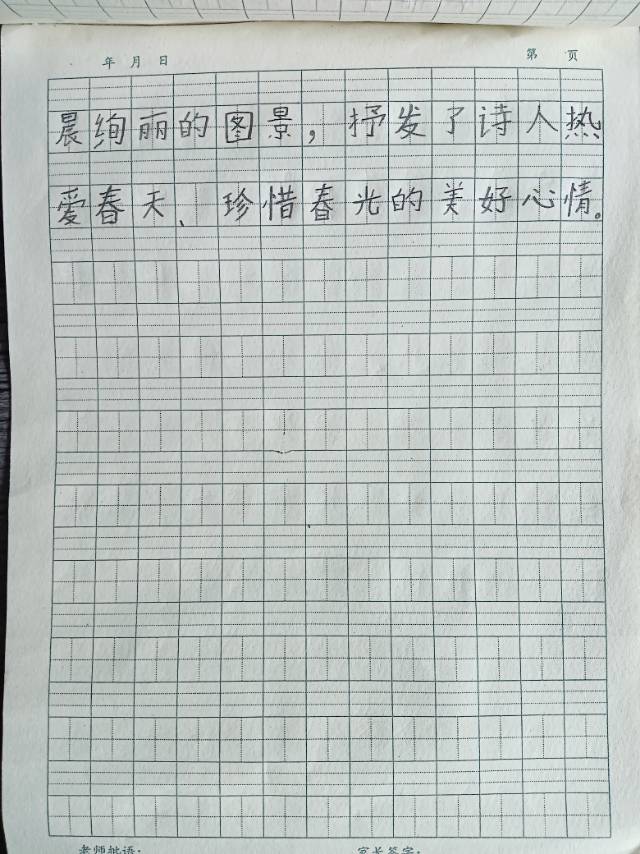 年 月 日 第 页
晨绚丽的图景，抒发了诗人热
爱春天、珍惜春光的美好心情。
老师批语： 家长签字：